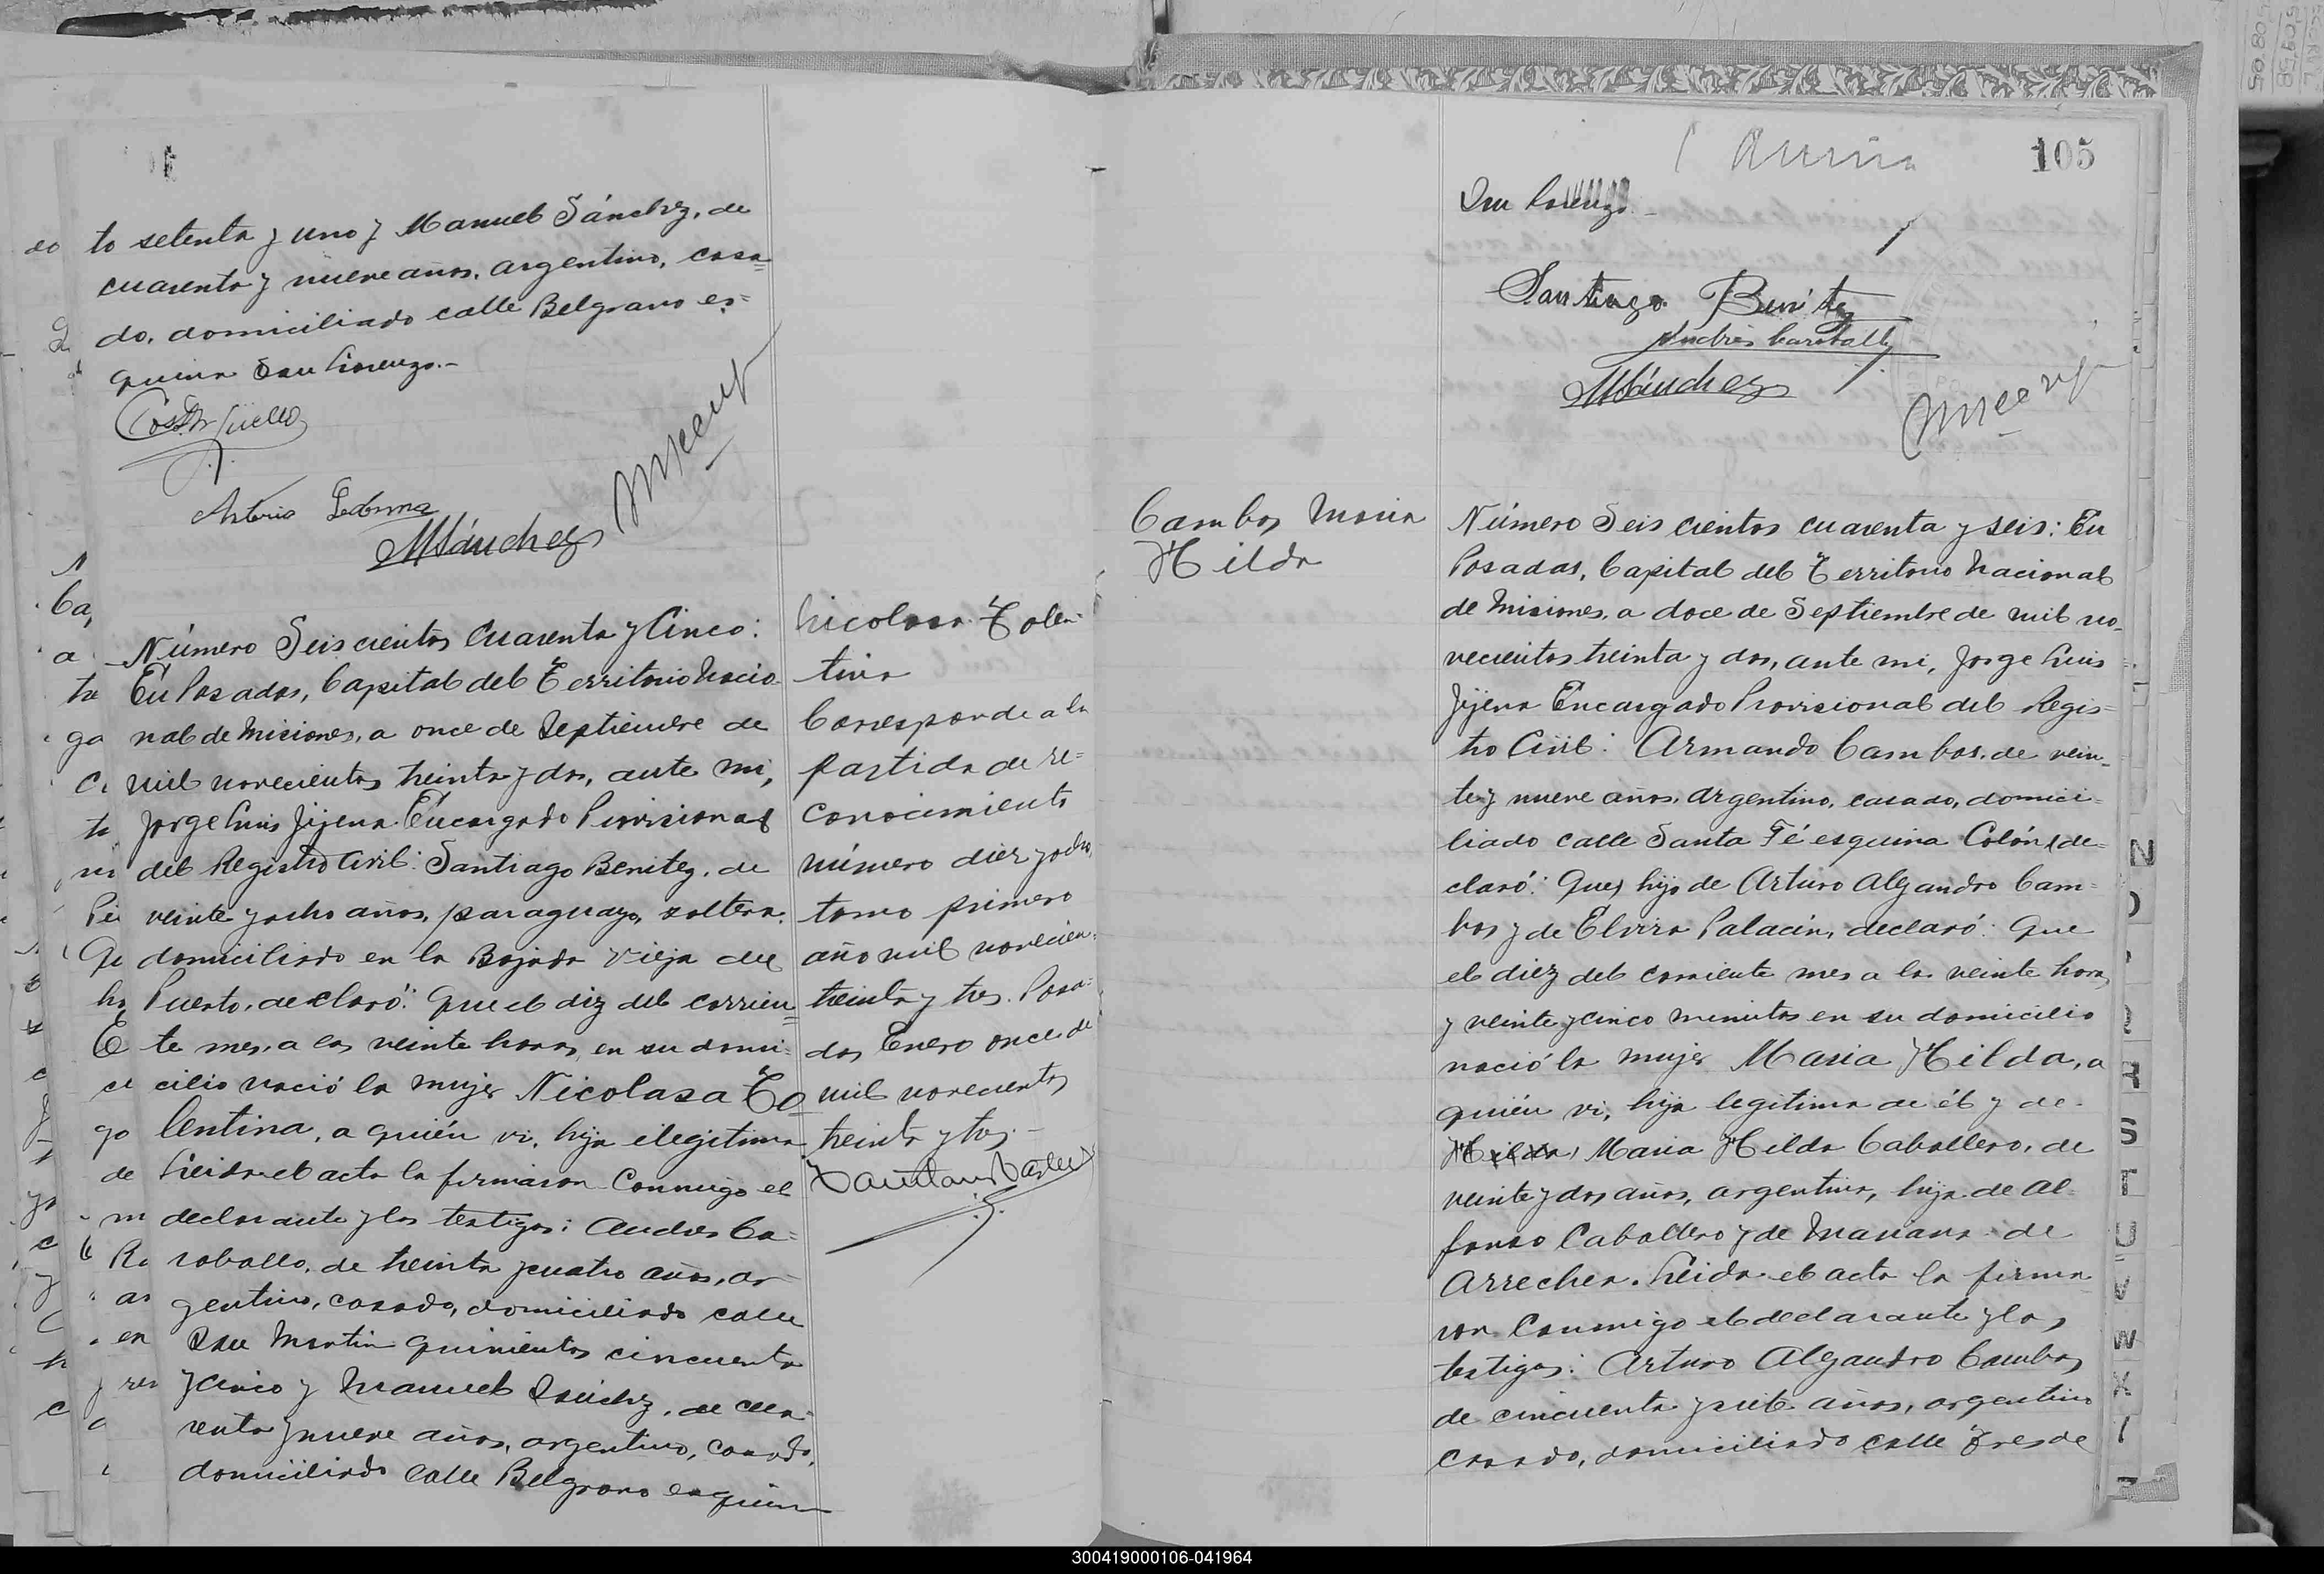 to setenta y uno y Manuel Sánchez, de
cuarenta y nueve años, argentino, casa=
do, domiciliado calle Belgrano es=
quina San Lorenzo.-
MSánchez
Número Seiscientos Cuarenta y Cinco:
En Posadas, Capital del Territorio Nacio
nal de Misiones, a once de Septiembre de
mil novecientos treinta y dos, ante mi,
Jorge Luis Jijena Encargado Provisional
del Registro Civil: Santiago Benitez, de
veinte y ocho años, paraguayo, soltero,
domiciliado en la Bajada Vieja del
Puerto, declaró: Que el diez del corrien=
te mes, a las veinte horas, en su domi=
cilio nació la mujer Nicolasa To
lentina, a quién vi, hija ilegitima
Leida el acta la firmaron Conmigo el
declarante y los testigos: Andres Ca=
raballo, de treinta y cuatro años, ar
gentino, casado, domiciliado calle
San Martin quinientos cincuenta
y cinco y Manuel Sánchez, de cua=
renta y nueve años, argentino, casado,
domiciliado calle Belgrano esquina
Nicolasa Tolen=
tina
Corresponde a la
partida de re=
conocimiento
número diez y ocho,
tomo primero
año mil novecien=
treinta y tres. Posa=
das Enero once de
mil novecientos
treinta y tres.-
105
San Lorenzo.-
Santiago Benitez
Andrés Caraballo
MSánchez
Cambas Maria
Hilda
Número Seis cientos cuarenta y seis: En
Posadas, Capital del Territorio Nacional
de Misiones, a doce de Septiembre de mil no=
vecientos treinta y dos, ante mi, Jorge Luis
Jijena Encargado Provisional del Regis=
tro Civil: Armando Cambas, de vein=
te y nueve años, argentino, casado, domici=
liado calle Santa Fé esquina Colón, de=
claró: Que, hijo de Arturo Alejandro Cam=
bas y de Elvira Palacin, declaró: Que
el diez del corriente mes a las veinte horas,
y veinte y cinco minutos en su domicilio
nació la mujer Maria Hilda, a
quién vi, hija legitima de él y de
Hilda, Maria Hilda Caballero, de
veinte y dos años, argentina, hija de Al=
fonso Caballero y de Mariana de
Arrechea. Leida el acta la firma
ron Conmigo el declarante y los
testigos: Arturo Alejandro Cambas
de cincuenta y siete años, argentino
casado, domiciliado calle Tres de
N
R
S
T
U
V
W
X
300419000106-041964